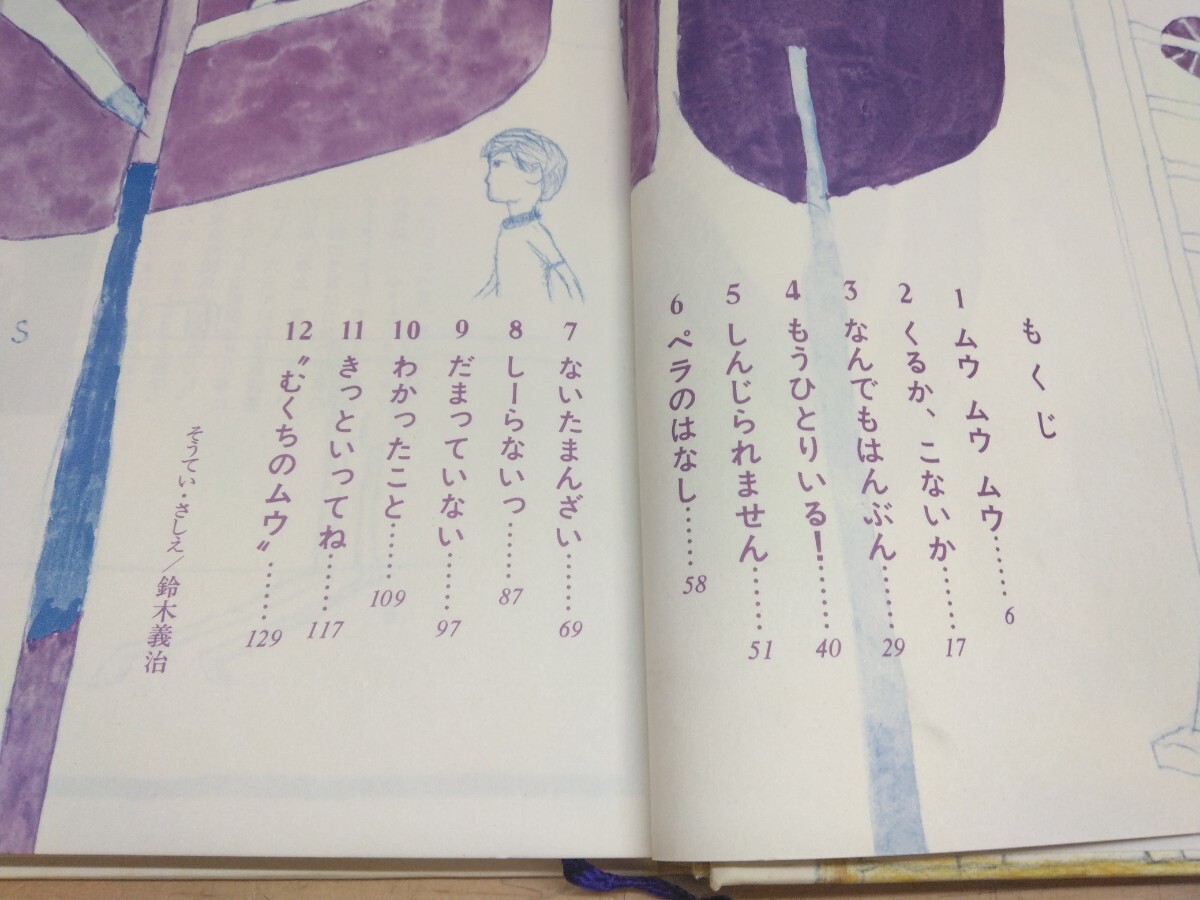 もくじ
1 ムウ ムウ ムウ……6
2 くるか、こないか……17
3 なんでもはんぶん……29
4 もうひとりいる!……40
5 しんじられません……51
6 ペラのはなし……58
7 ないたまんざい……69
8 しーらないっ……87
9 だまっていない……97
10 わかったこと……109
11 きっといってね……117
12 〝むくちのムウ〟……129
そうてい・さしえ/鈴木義治
S